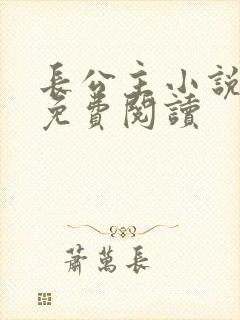 長公主小說
免費閱讀
蕭萬長